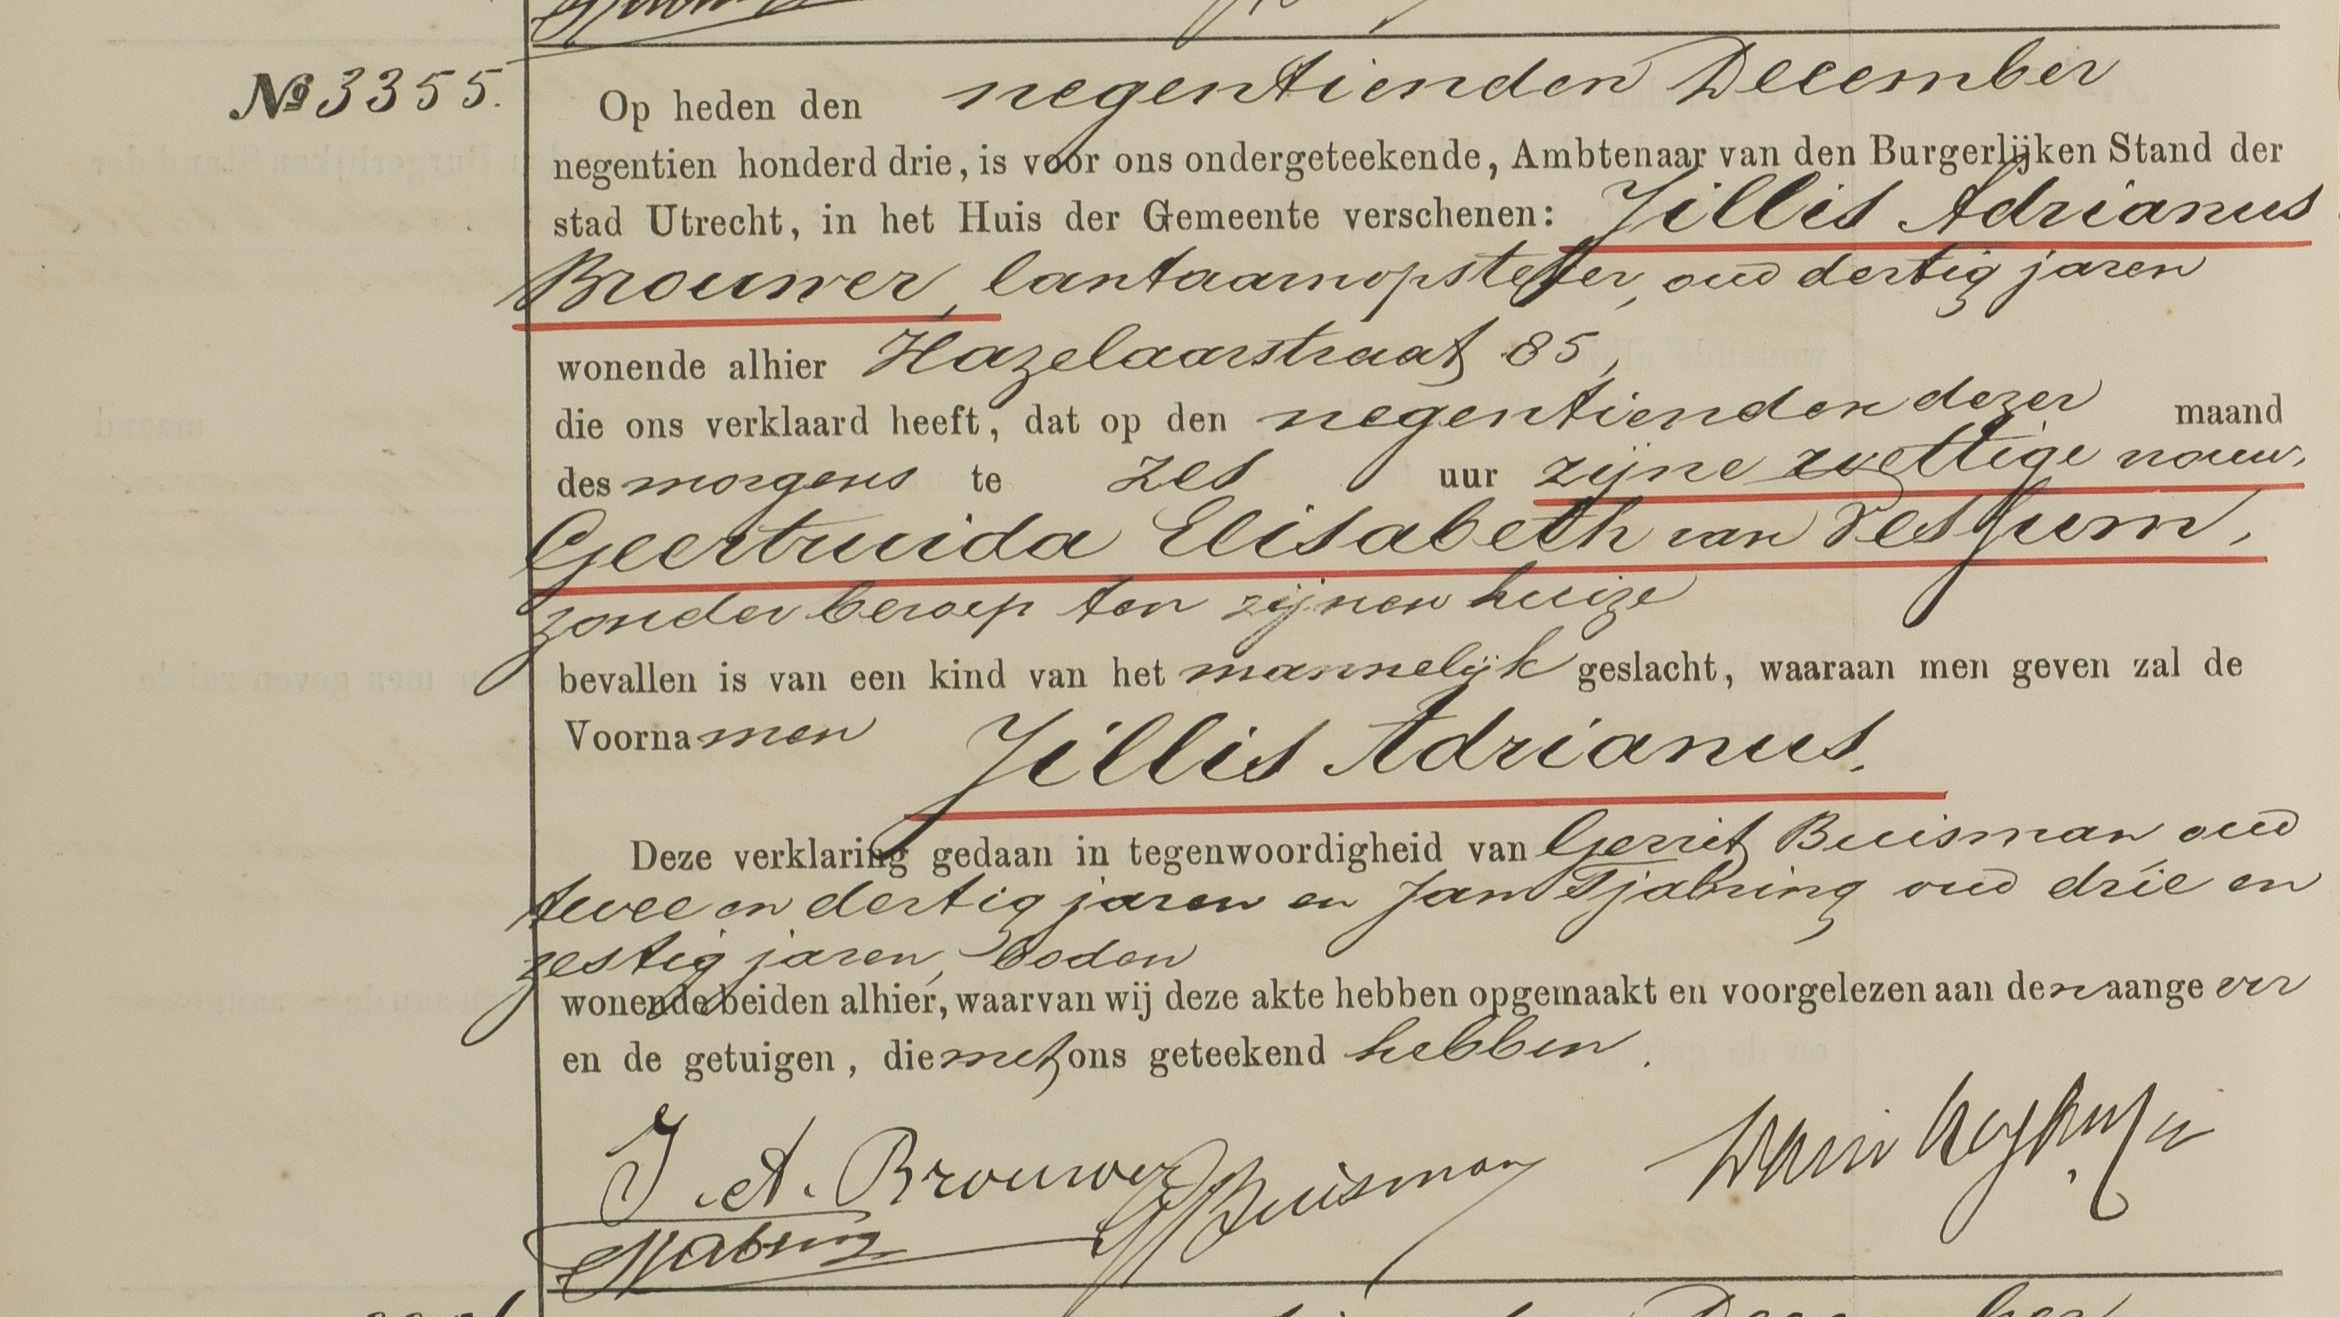 № 3355.
Op heden den negentienden December
negentien honderd drie, is voor ons ondergeteekende, Ambtenaar van den Burgerlijken Stand der
stad Utrecht, in het Huis der Gemeente verschenen: Jillis Adrianus
Brouwer, lantaarnopsteker, oud dertig jaren
wonende alhier Hazelaarstraat 85,
die ons verklaard heeft, dat op den negentienden dezer maand
des morgens te zes uur zijne wettige vrouw,
Geertruida Elisabeth van Dessum,
zonder beroep ten zijnen huize
bevallen is van een kind van het mannelijk geslacht, waaraan men geven zal de
Voornamen Jillis Adrianus.
Deze verklaring gedaan in tegenwoordigheid van Gerrit Buisman, oud
twee en dertig jaren en Jan Tjabring oud drie en
zestig jaren, boden
wonende beiden alhier, waarvan wij deze akte hebben opgemaakt en voorgelezen aan den aangever
en de getuigen, die met ons geteekend hebben.
J. A. Brouwer
GBuisman
Tjabring